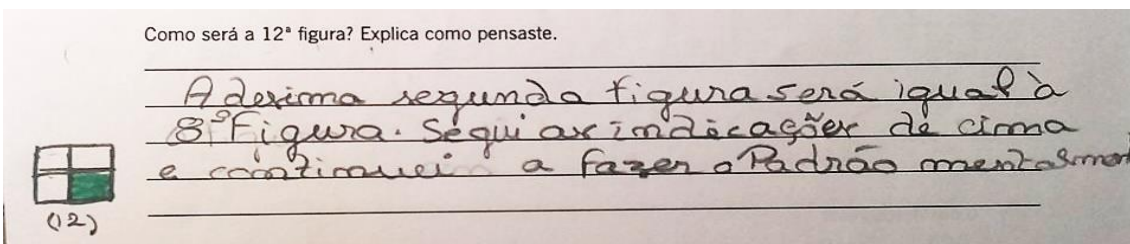 Como será a 12ª figura? Explica como pensaste.
A desima segunda figura será igual à
8ª Figura. Segui as indicações de cima
e continuei a fazer o Padrão mentalmen
(12)